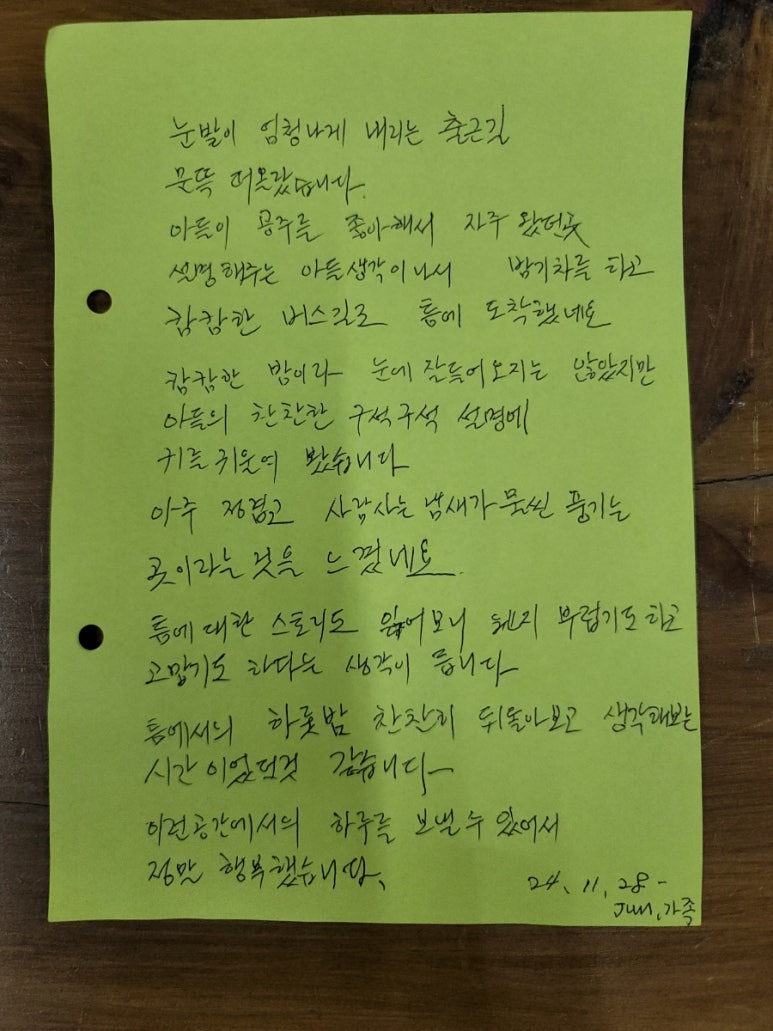 눈발이 엄청나게 내리는 출근길
문뜩 떠올랐습니다.
아들이 공주를 좋아해서 자주 왔던곳
설명해주는 아들생각이나서 밤기차를 타고
캄캄한 버스길로 틈에 도착했네요
캄캄한 밤이라 눈에 잘들어오지는 않았지만
아들의 찬찬한 구석구석 설명에
귀를 귀울여 봤습니다
아주 정겹고 사람사는 냄새가 물씬 풍기는
곳이라는것을 느꼈네요.
틈에대한 스토리도 읽어보니 웬지 부럽기도하고
고맙기도 하다는 생각이 듭니다
틈에서의 하룻밤 찬찬히 뒤돌아보고 생각해보는
시간이었던것 같습니다
이런공간에서의 하루를 보낼수 있어서
정말 행복했습니다.
24. 11. 28 -
Jun, 가족